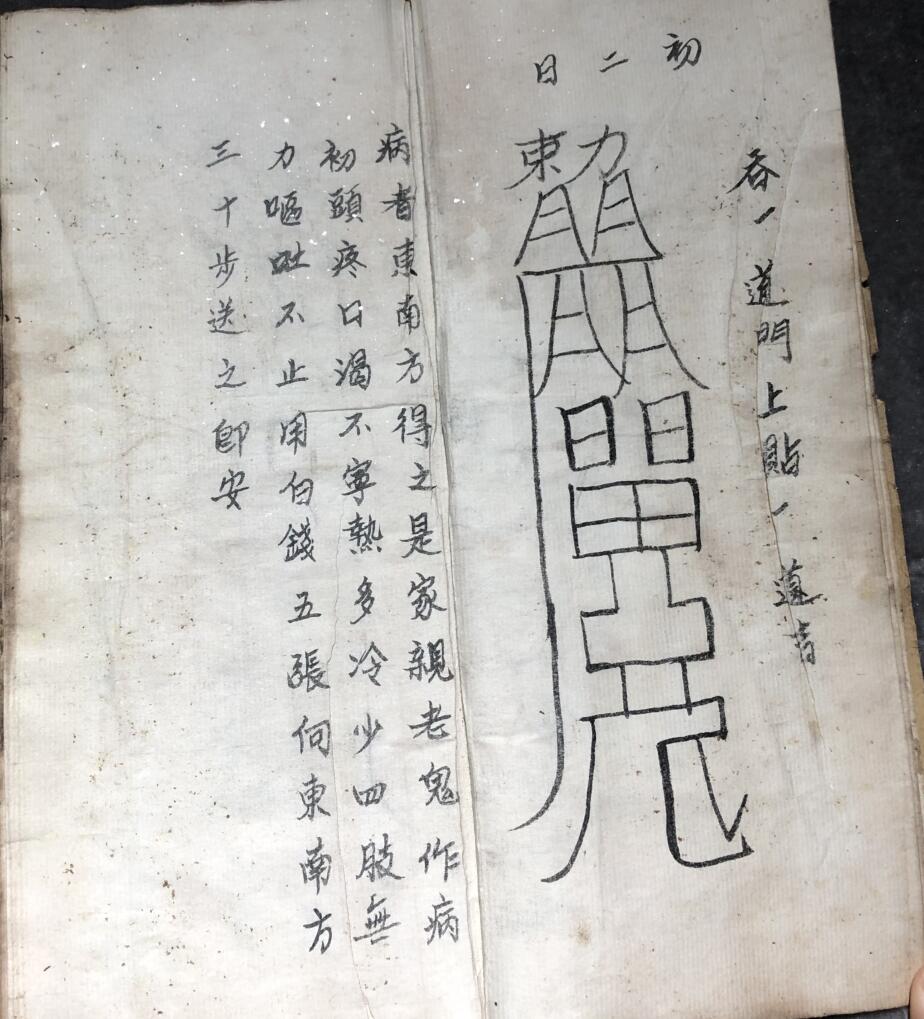 初二日
吞一道門上貼一道吉
東力
日日
病者東南方得之是家親老鬼作病
初頭疼口渴不寧熱多冷少四肢無
力嘔吐不止用白錢五張向東南方
三十步送之即安